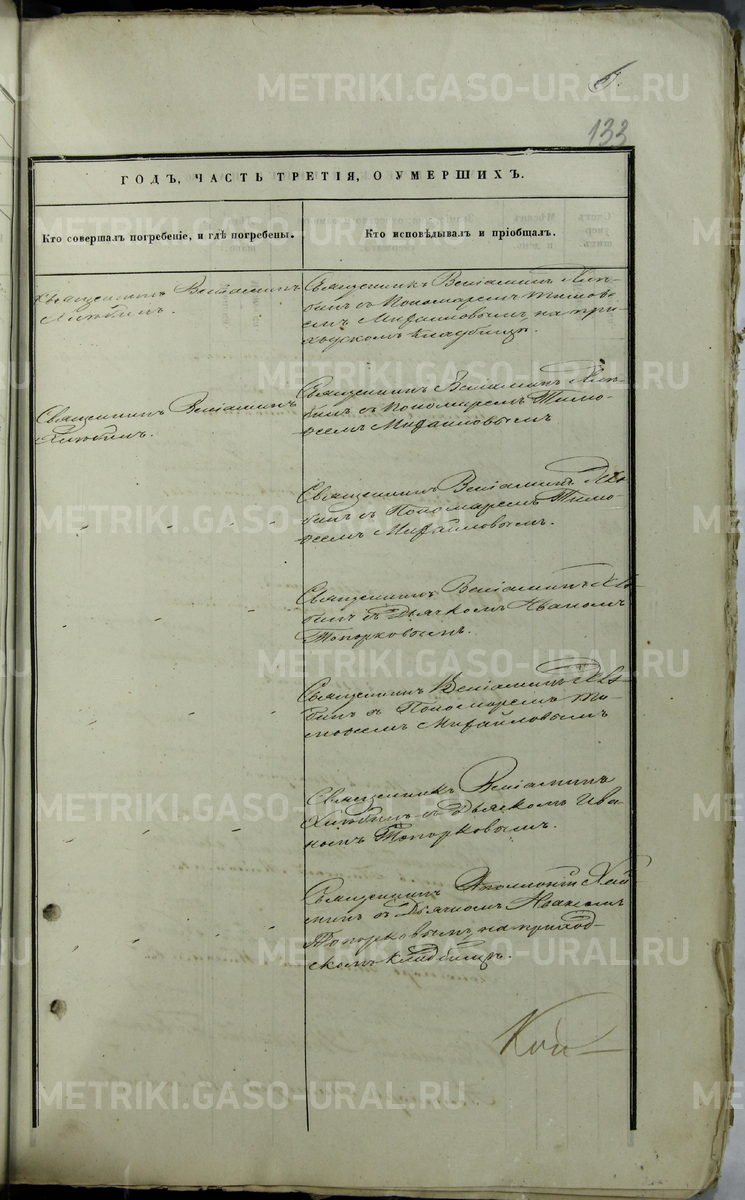 133
ГОДЪ, ЧАСТЬ ТРЕТІЯ, О УМЕРШИХЪ.
Кто совершалъ погребеніе, и гдѣ погребены.
Кто исповѣдывалъ и пріобщалъ.
Священникъ Веніаминъ
Священникъ Веніаминъ
Священникъ Веніаминъ
съ Пономаремъ Тимоѳе
емъ Михайловымъ, на при
ходскомъ кладбищѣ.
Священникъ Веніаминъ
съ Пономаремъ Тимо
ѳеемъ Михайловымъ
Священникъ Веніаминъ
съ Пономаремъ Тимо
ѳеемъ Михайловымъ.
Священникъ Веніаминъ
съ Дьячкомъ Иваномъ
Топорковымъ.
Священникъ Веніаминъ
съ Пономаремъ Ти
моѳеемъ Михайловымъ
Священникъ Веніаминъ
съ Дьячкомъ Ива
номъ Топорковымъ.
Священникъ
съ Дьячкомъ Иваномъ
Топорковымъ, на приход
скомъ кладбищѣ.
METRIKI.GASO-URAL.RU